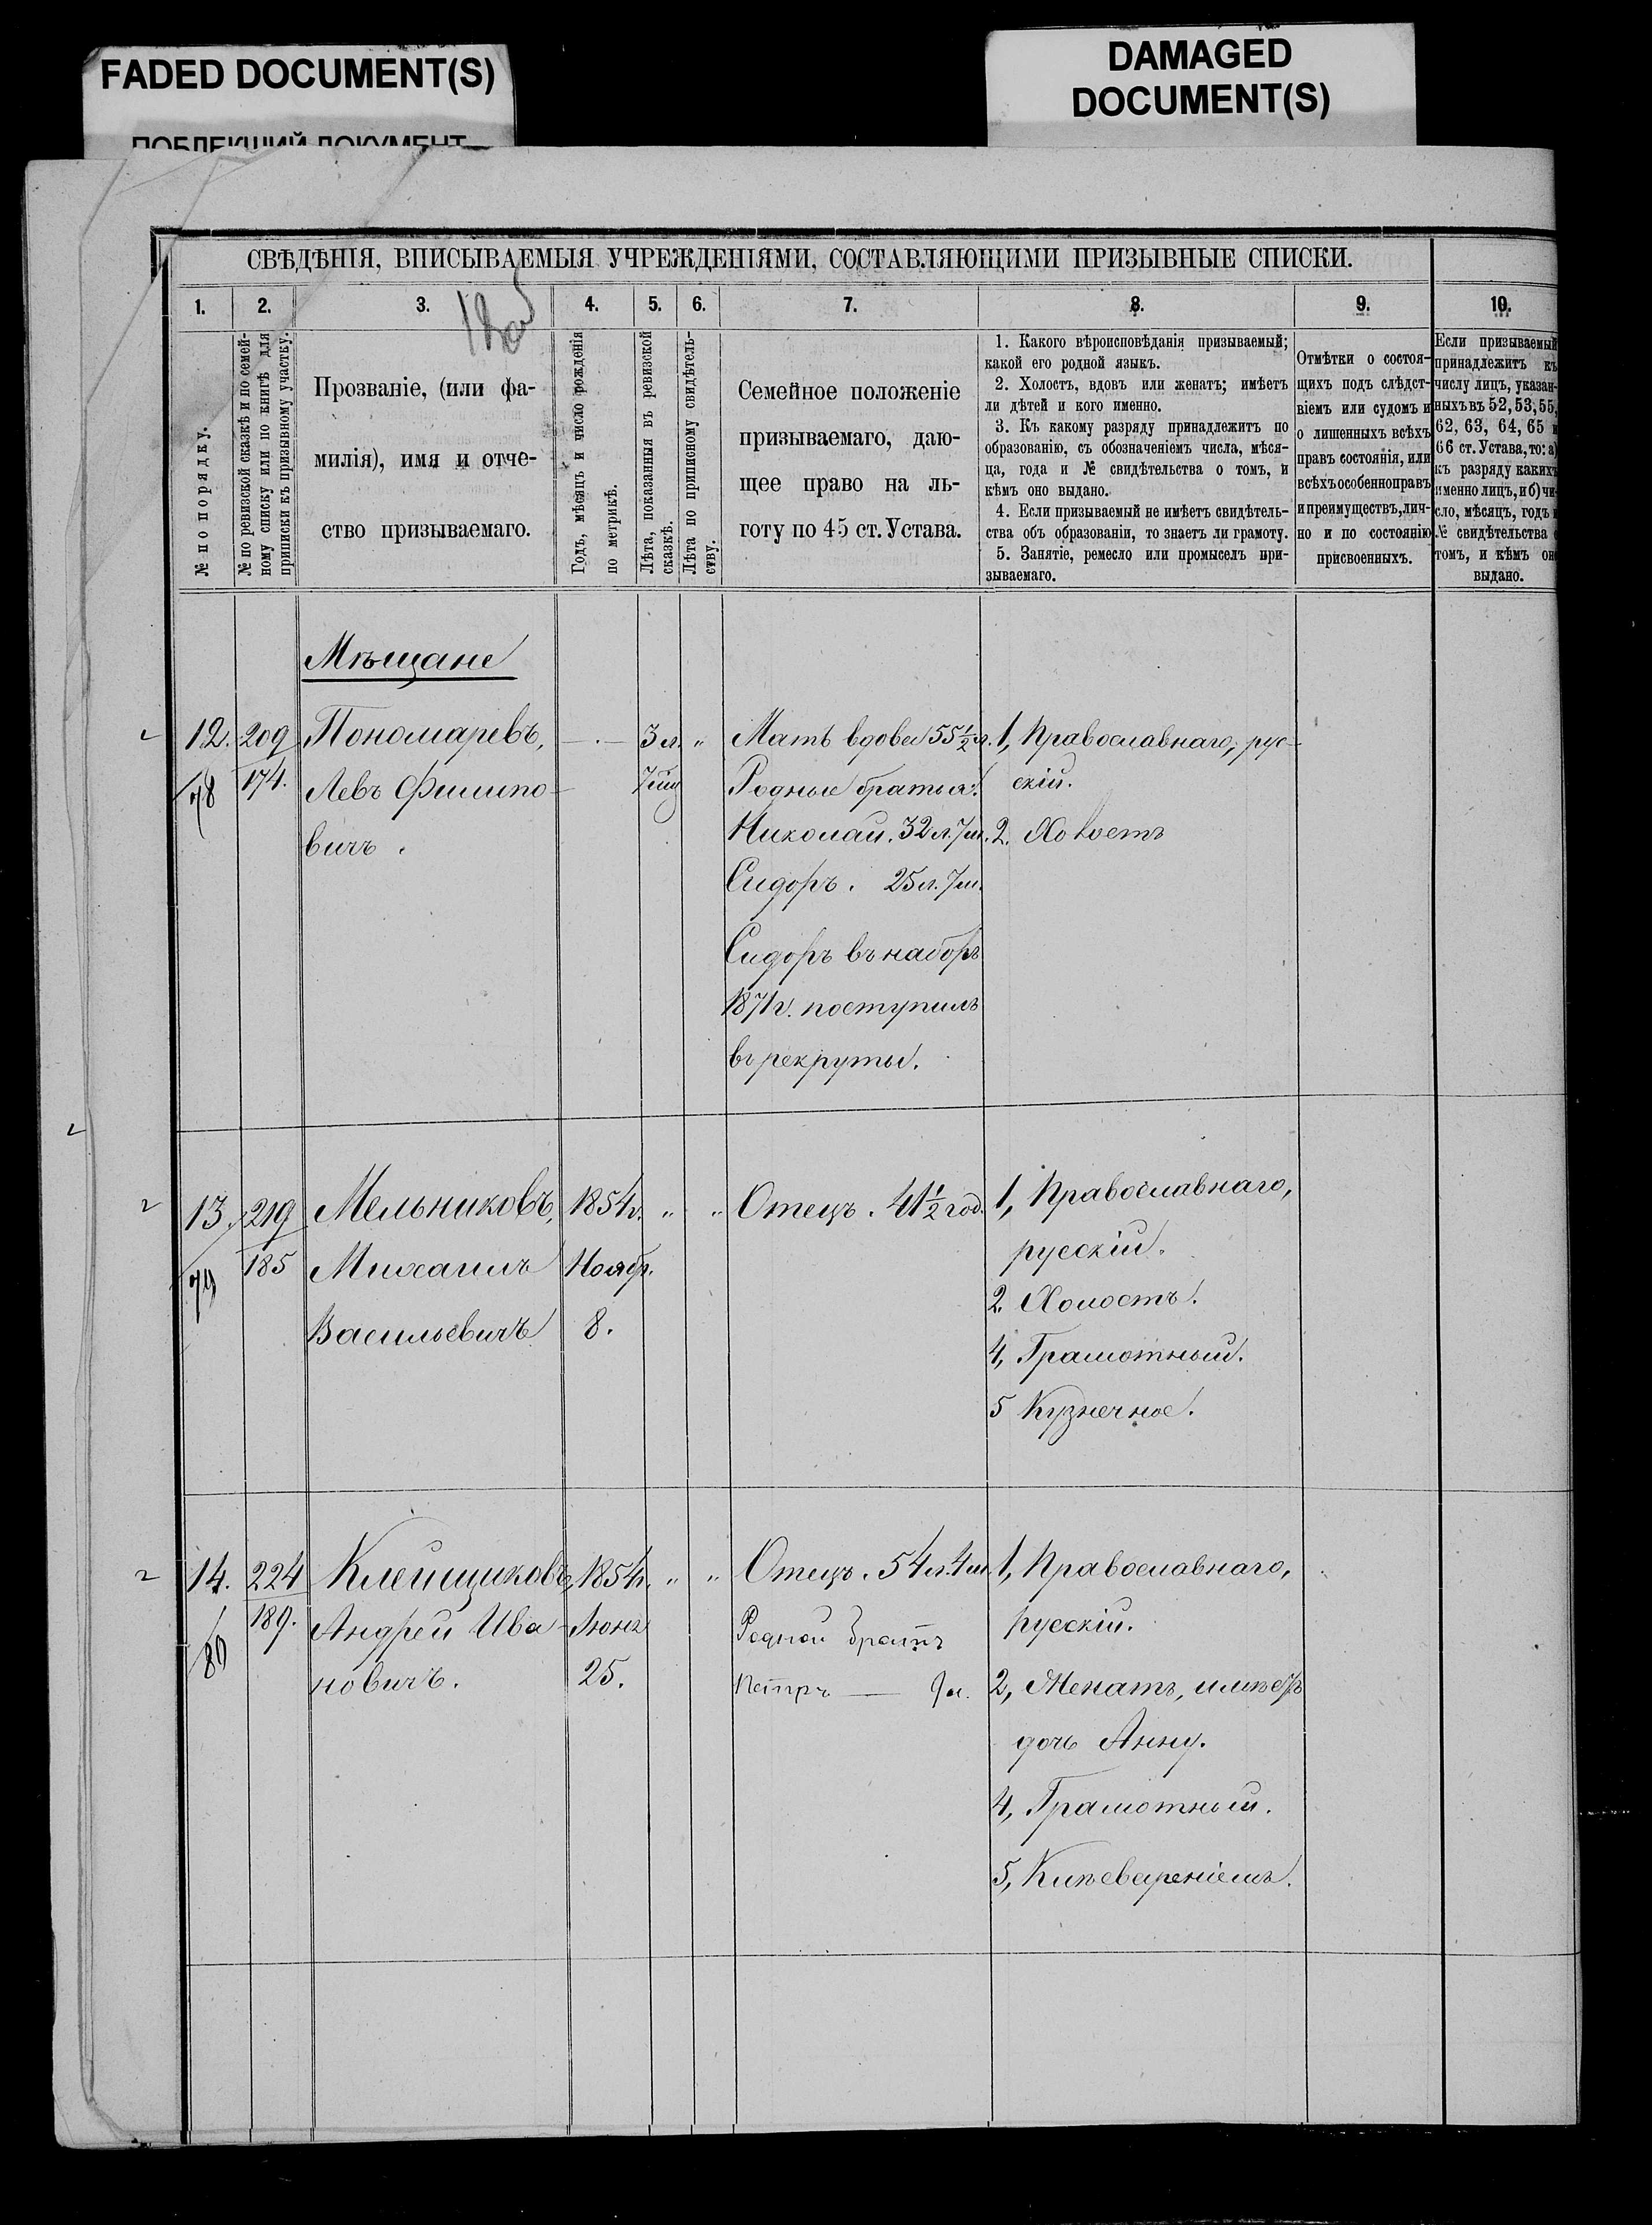 FADED DOCUMENT(S)
ПОБЛЕКШИЙ ДОКУМЕНТ
DAMAGED
DOCUMENT(S)
СВѢДѢНІЯ, ВПИСЫВАЕМЫЯ УЧРЕЖДЕНІЯМИ, СОСТАВЛЯЮЩИМИ ПРИЗЫВНЫЕ СПИСКИ.
1. 2. 3. 4. 5. 6. 7. 8. 9. 10.
№ по порядку.
№ по ревизской сказкѣ и по семей-
ному списку или по книгѣ для
приписки къ призывному участку.
Прозваніе, (или фа-
милія), имя и отче-
ство призываемаго.
Годъ, мѣсяцъ и число рожденія
по метрикѣ.
Лѣта, показанныя въ ревизской
сказкѣ.
Лѣта по приписному свидѣтель-
ству.
Семейное положеніе
призываемаго, даю-
щее право на ль-
готу по 45 ст. Устава.
1. Какого вѣроисповѣданія призываемый;
какой его родной языкъ.
2. Холостъ, вдовъ или женатъ; имѣетъ
ли дѣтей и кого именно.
3. Къ какому разряду принадлежитъ по
образованію, съ обозначеніемъ числа, мѣся-
ца, года и № свидѣтельства о томъ, и
кѣмъ оно выдано.
4. Если призываемый не имѣетъ свидѣтель-
ства объ образованіи, то знаетъ ли грамоту.
5. Занятіе, ремесло или промыселъ при-
зываемаго.
Отмѣтки о состоя-
щихъ подъ слѣдст-
віемъ или судомъ и
о лишенныхъ всѣхъ
правъ состоянія, или
всѣхъ особенно правъ
и преимуществъ, лич-
но и по состоянію
присвоенныхъ.
Если призываемый
принадлежитъ къ
числу лицъ, указан-
ныхъ въ 52, 53, 55,
62, 63, 64, 65 и
66 ст. Устава, то: а)
къ разряду какихъ
именно лицъ, и б) чи-
сло, мѣсяцъ, годъ и
№ свидѣтельства о
томъ, и кѣмъ оно
выдано.
Мѣщане
12. 209 Пономаревъ, — 3 л. " Мать вдова 55 1/2 л. 1, Православнаго, рус-
78 174. Левъ Филипо- 7 мц Родные братья: скій.
вичъ. Николай. 32 л. 7 м. 2. Холостъ
Сидоръ. 25 л. 7 м.
Сидоръ въ наборъ
1871 г. поступилъ
въ рекруты.
13. 219 Мельниковъ, 1854 г. " " Отецъ. 41 1/2 год. 1, Православнаго,
79 185 Михаилъ Ноябр. русскій.
Васильевичъ 8. 2. Холостъ.
4, Грамотный.
5 Кузнечное.
14. 224 Клейщиковъ, 1854 г. " " Отецъ. 54 л. 4 м. 1, Православнаго,
80 189. Андрей Ива- Іюня Родной братъ русскій.
новичъ. 25. Петръ — 9 л. 2, Женатъ, имѣетъ
дочь Анну.
4, Грамотный.
5, Клѣевареніемъ.